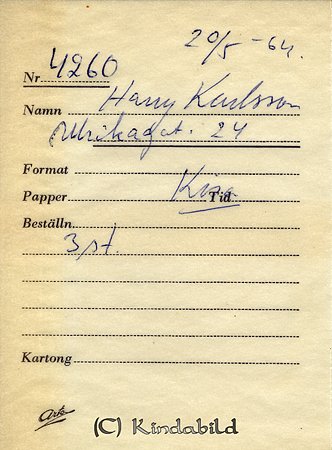 20/5 -64.
Nr 4260
Namn Harry Karlsson
Ulrikagat. 24
Format
Papper Kisa Tid
Beställn
3 st.
Kartong
Ark
(C) Kindabild